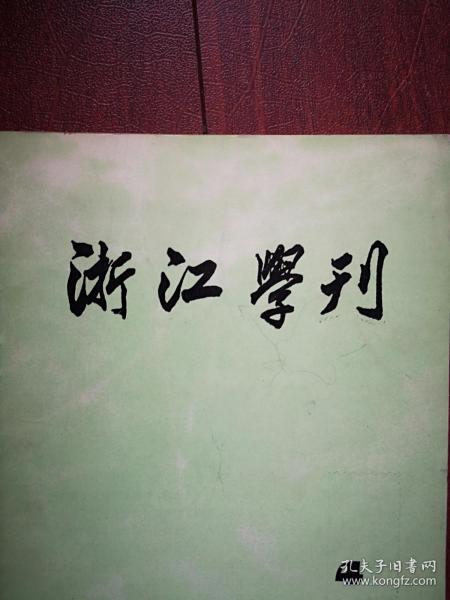 浙江學刊
孔夫子旧书网
www.kongfz.com